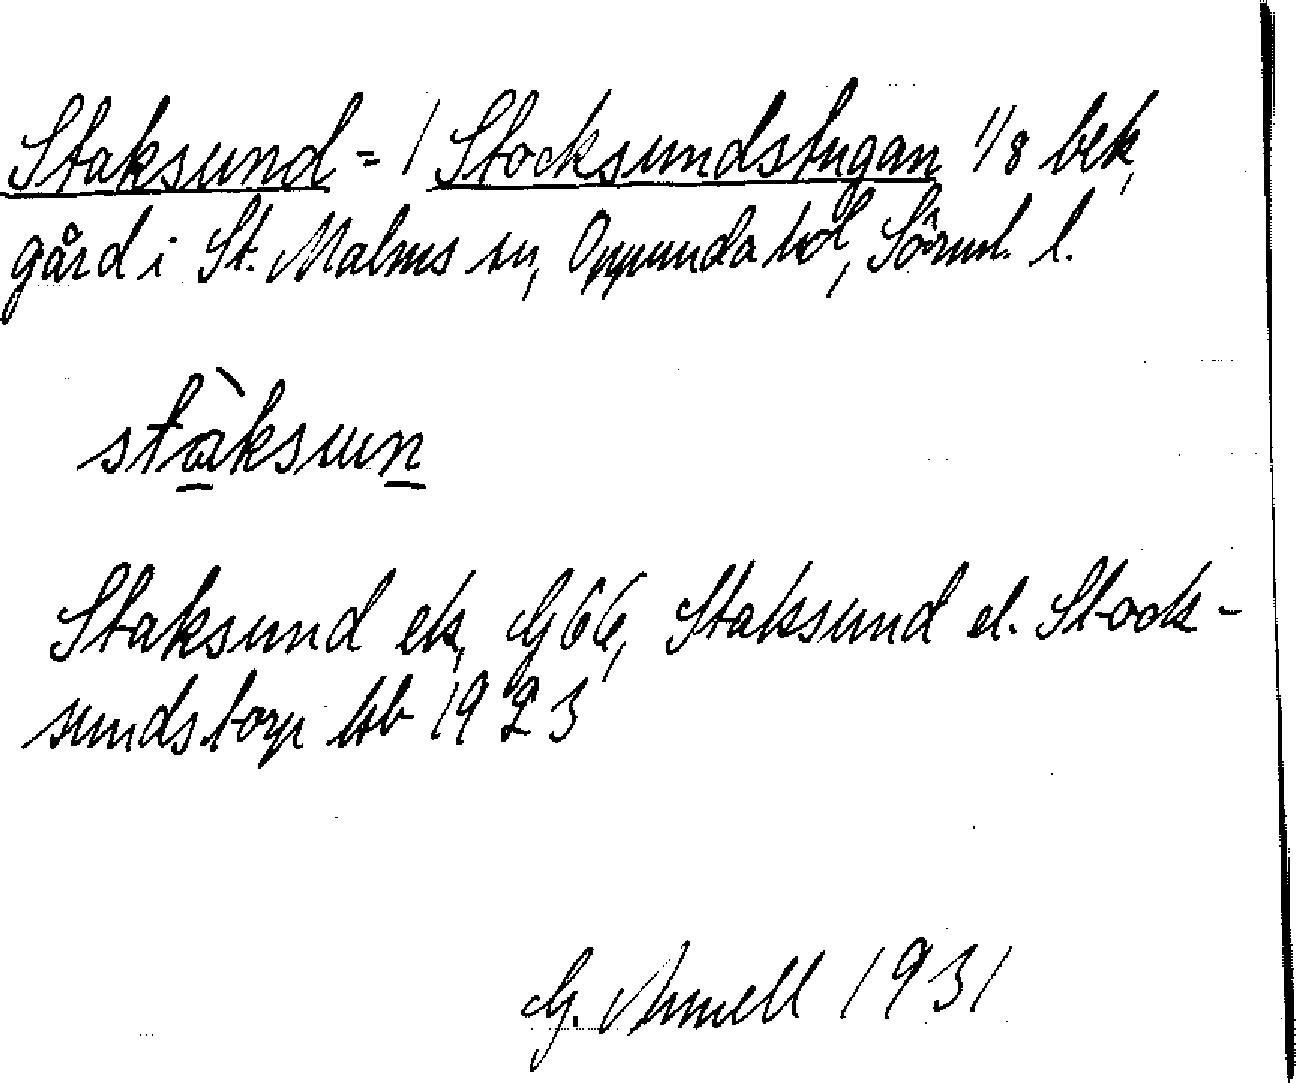 Staksund = 1 Stocksundstugan 1/8 bek,
gård i St. Malms sn, Oppunda hd, Sörml. l.
stàksun
Staksund ek, G66, Staksund el. Stock-
sundstorp kb 1923
G. 1931